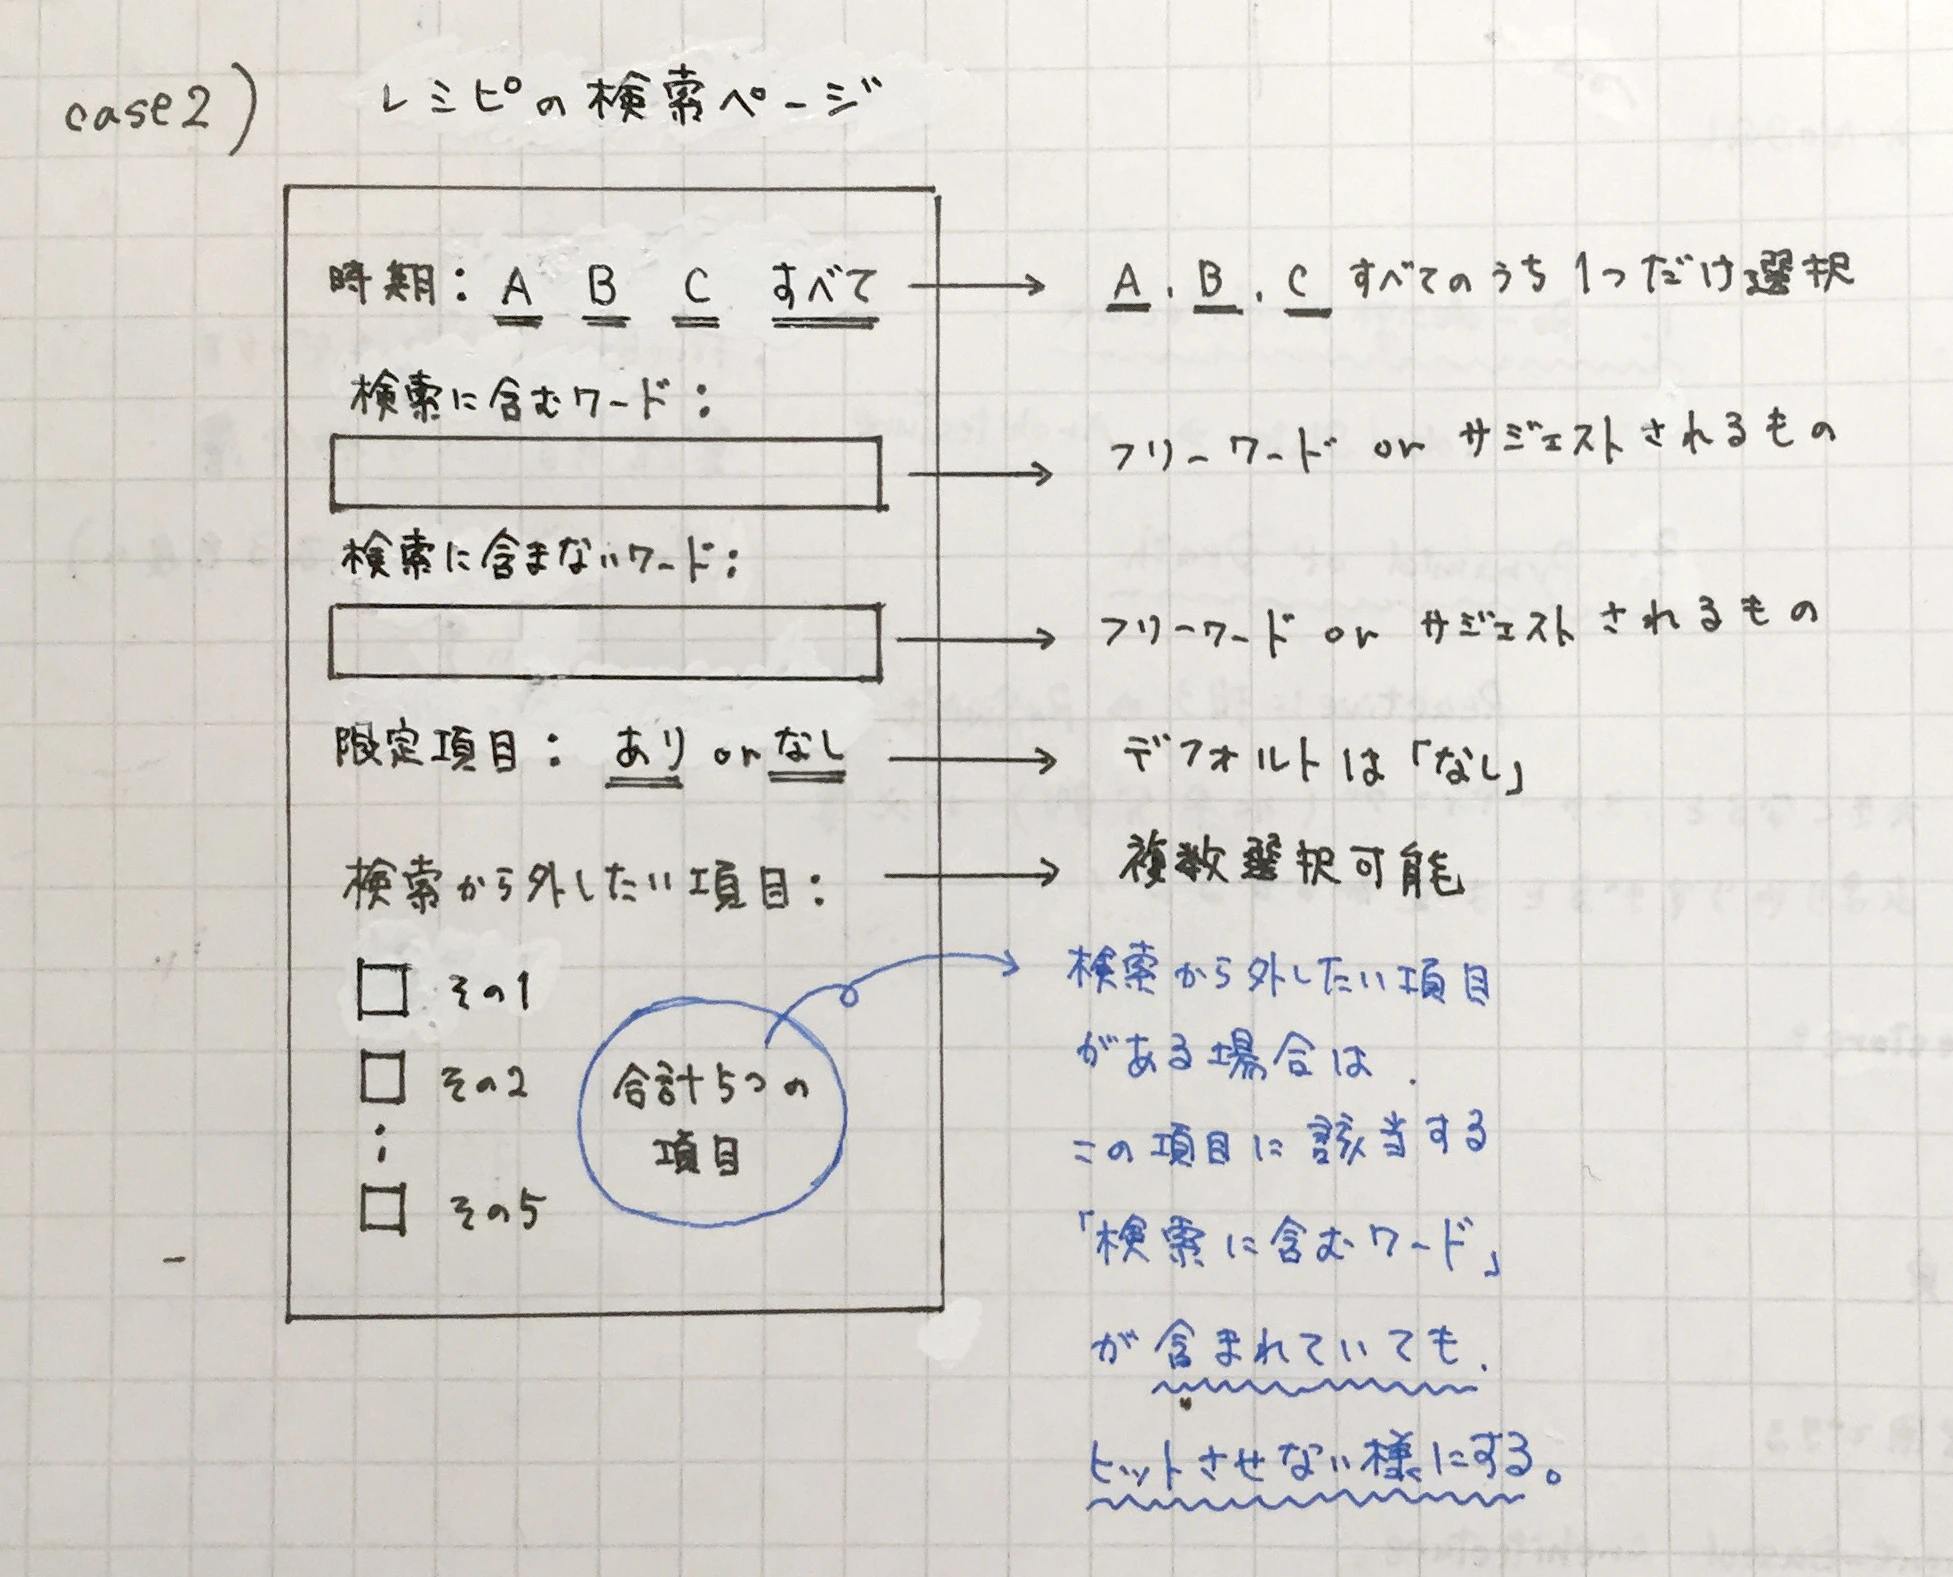 case2)
レシピの検索ページ
時期: A B C すべて
A. B. C すべてのうち1つだけ選択
検索に含むワード:
フリーワード or サジェストされるもの
検索に含まないワード:
フリーワード or サジェストされるもの
限定項目: あり or なし
デフォルトは「なし」
検索から外したい項目:
複数選択可能
その1
その2
:
その5
合計5つの
項目
検索から外したい項目
がある場合は.
この項目に該当する
「検索に含むワード」
が含まれていても.
ヒットさせない様にする。